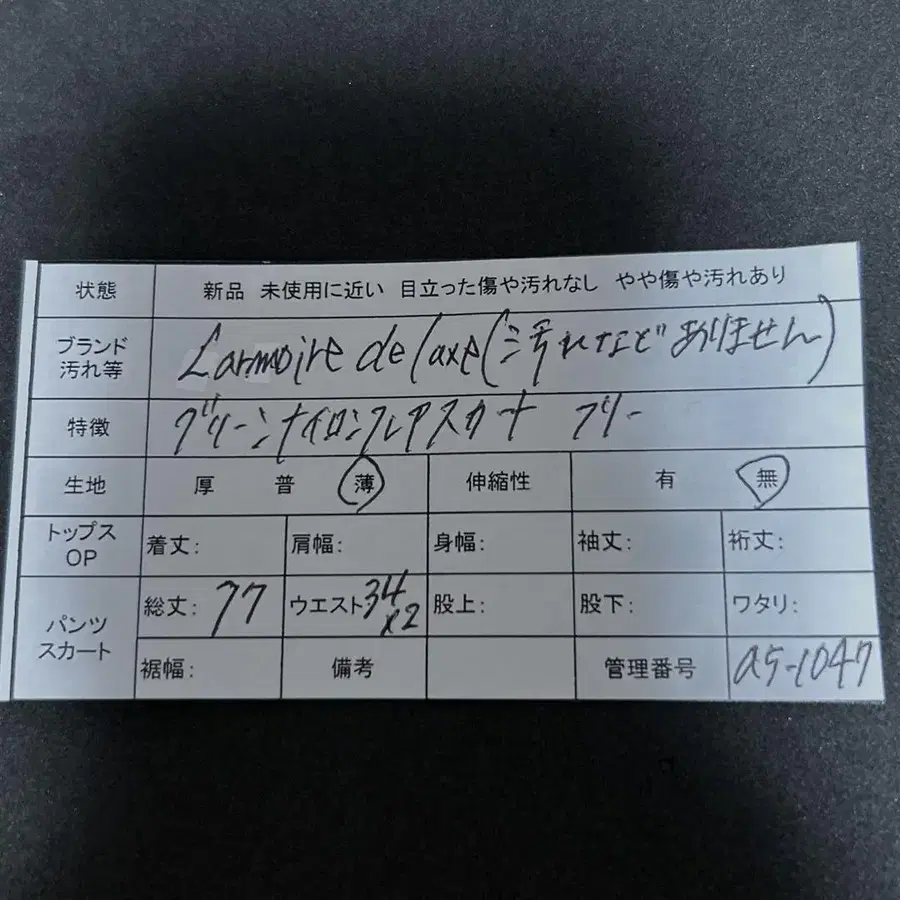 状態 新品 未使用に近い 目立った傷や汚れなし やや傷や汚れあり
ブランド
汚れ等
L'armoire de luxe(汚れなどありません)
特徴 グリーンナイロンフレアスカート フリー
生地 厚 普 薄 伸縮性 有 無
トップス
OP
着丈: 肩幅: 身幅: 袖丈: 裄丈:
パンツ
スカート
総丈: 77 ウエスト 34
x2
股上: 股下: ワタリ:
裾幅: 備考 管理番号 a5-1047